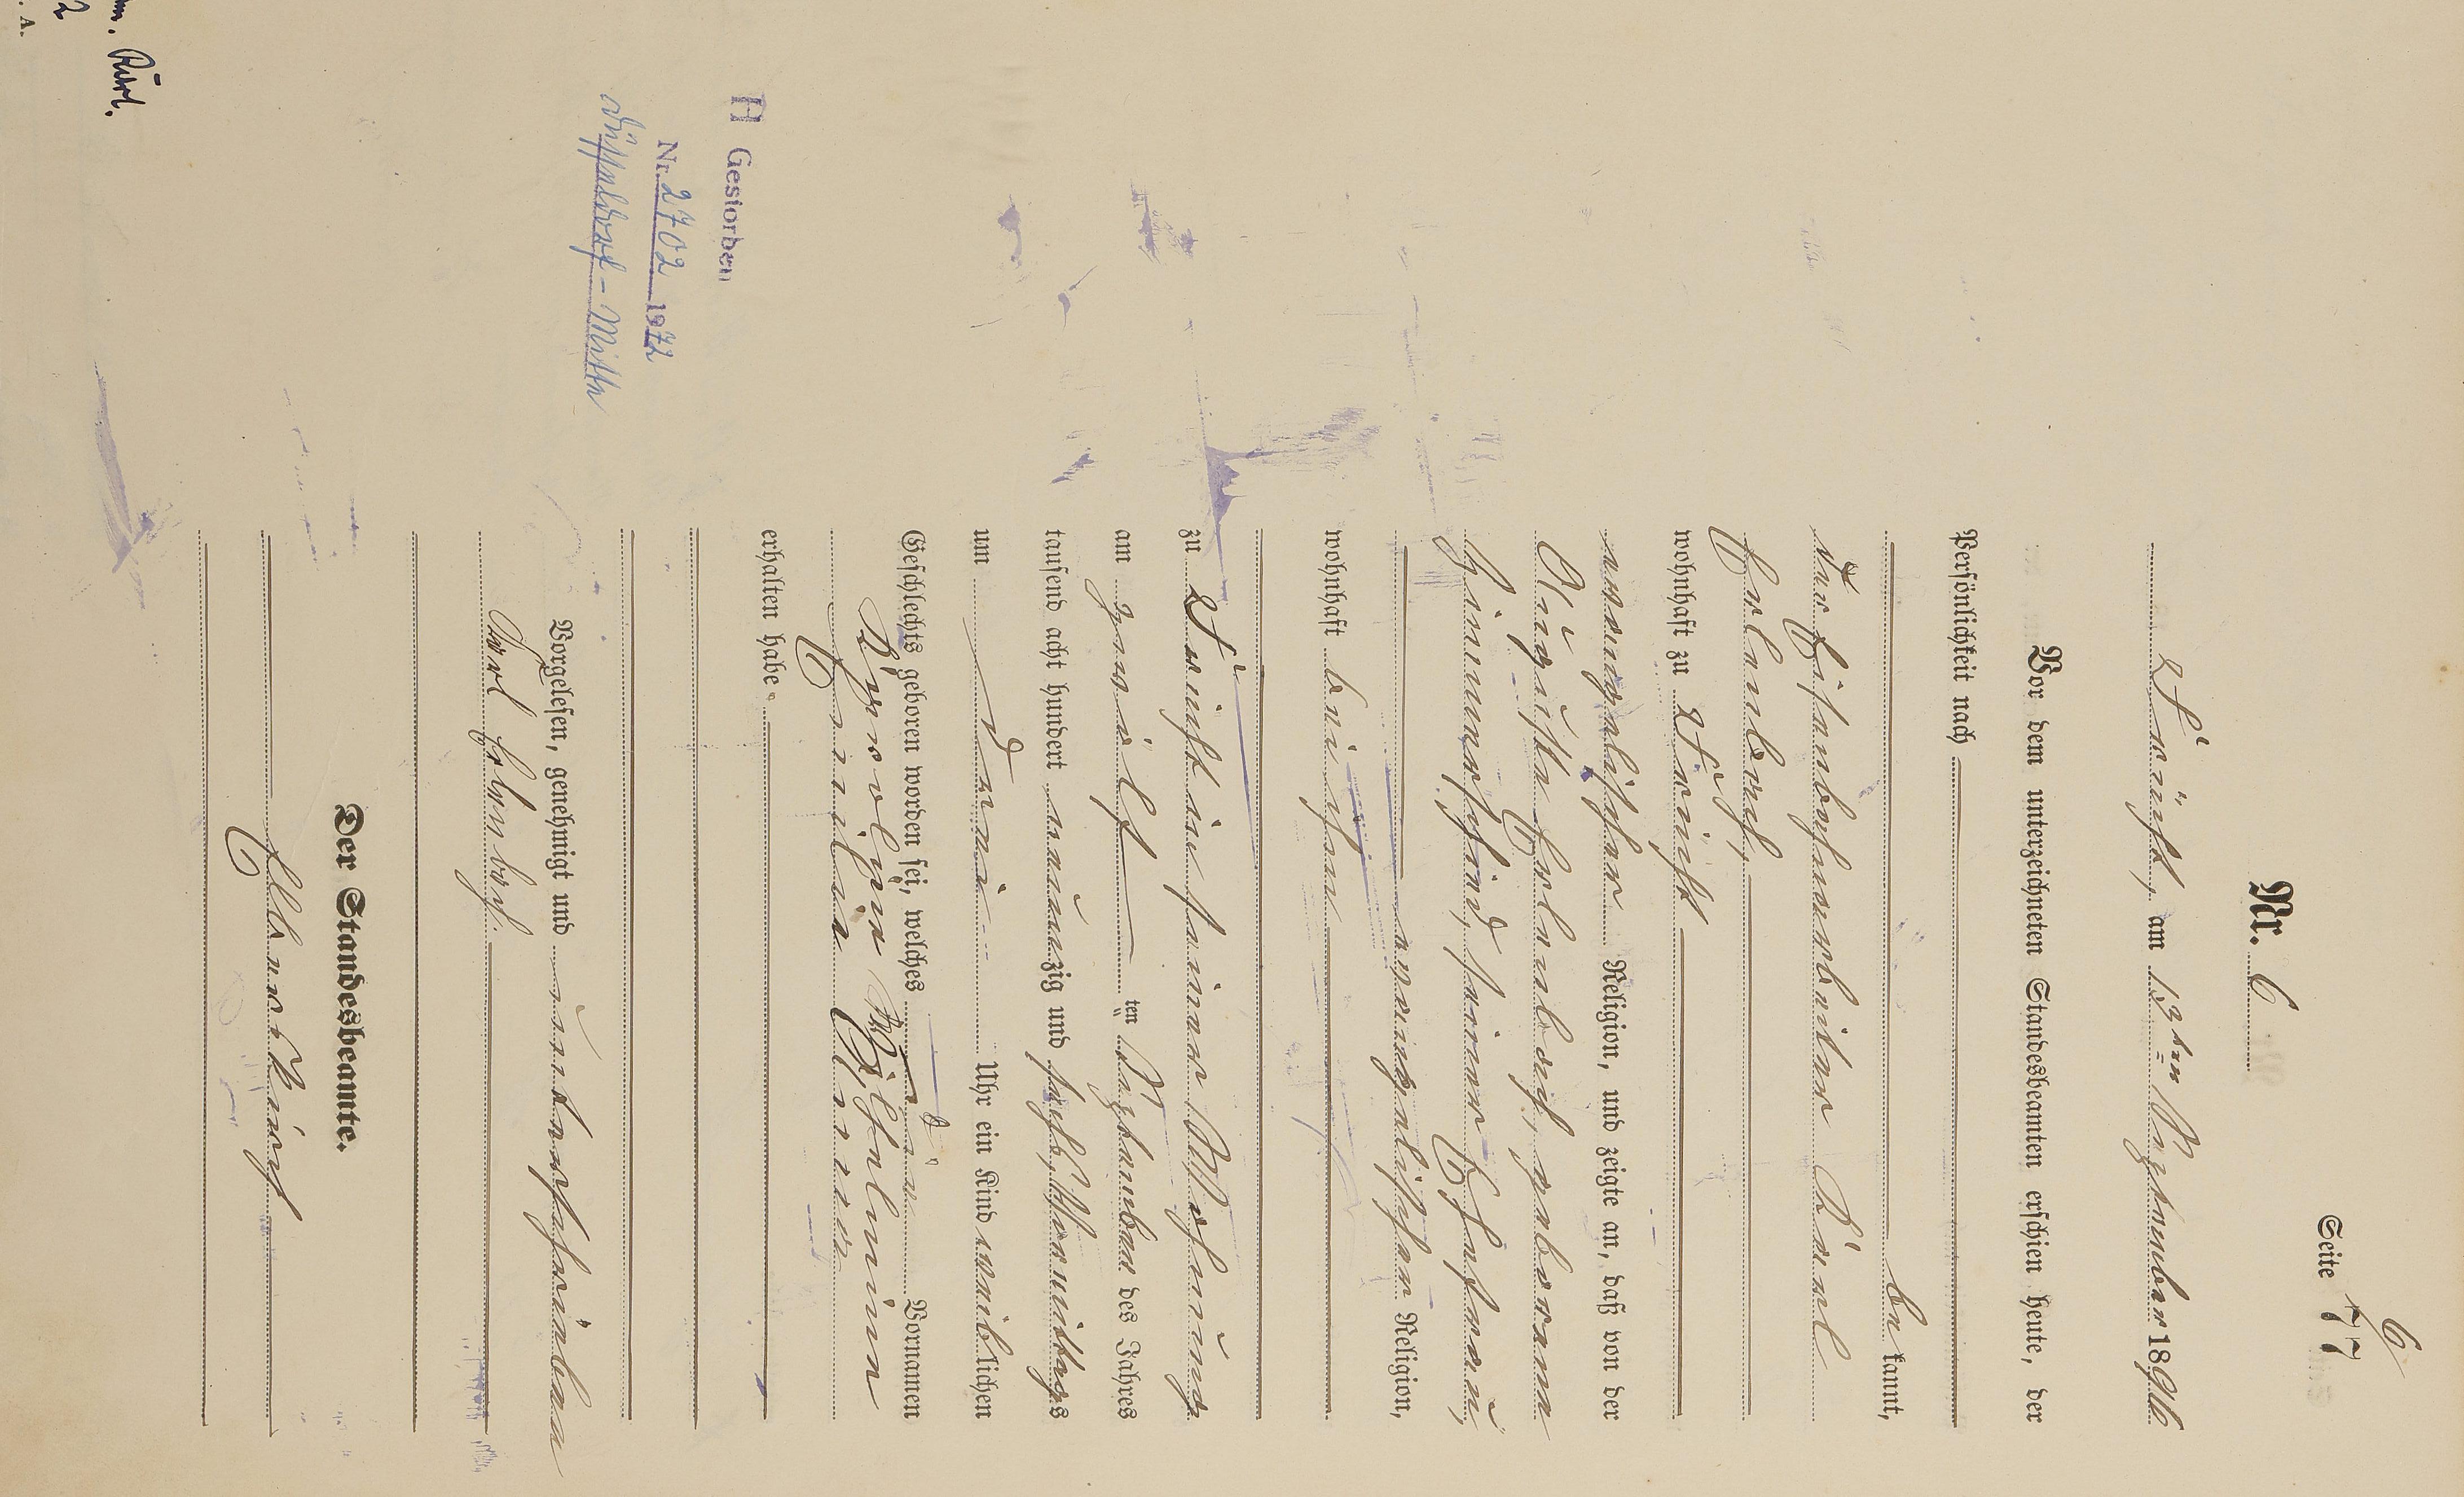 6
Seite 77
Nr. 6
am 13ten September 1896
Vor dem unterzeichneten Standesbeamten erschien heute, der
Persönlichkeit nach
be kannt,
der Eisenbahnarbeiter Karl
Erlenbach,
wohnhaft zu
evangelischer Religion, und zeigte an, daß von der
Auguste Erlenbach, geborene
seiner Ehefrau,
evangelischen Religion,
wohnhaft bei ihm
zu in seiner Wohnung
am zwölf ten September des Jahres
tausend acht hundert neunzig und sechs, Vormittags
um drei Uhr ein Kind weiblichen
Geschlechts geboren worden sei, welches Vornamen
Wilhelmine
erhalten habe.
Vorgelesen, genehmigt und unterschrieben
Karl Erlenbach.
Der Standesbeamte.
H Gestorben
Nr. 2702 1972
Düsseldorf-Mitte